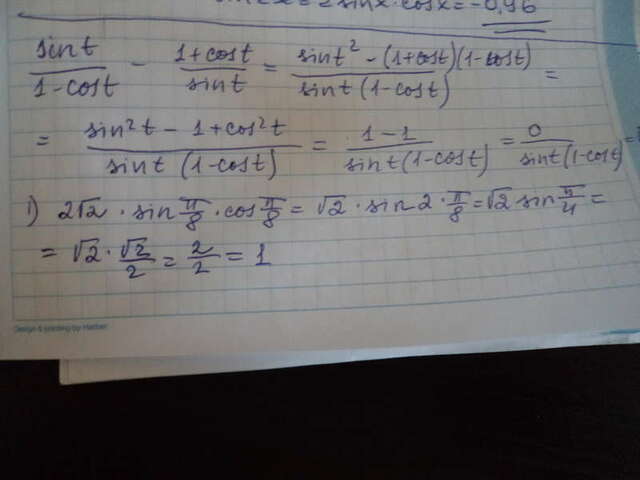 sin2x = 2 sinx · cosx = -0,96
sint/1-cost - 1+cost/sint = sint²-(1+cost)(1-cost)/sint(1-cost) =
= sin²t-1+cos²t/sint(1-cost) = 1-1/sint(1-cost) = 0/sint(1-cost) =
1) 2√2 · sin π/8 · cos π/8 = √2 · sin 2 · π/8 = √2 sin π/4 =
= √2 · √2/2 = 2/2 = 1
Design & printing by Hatber